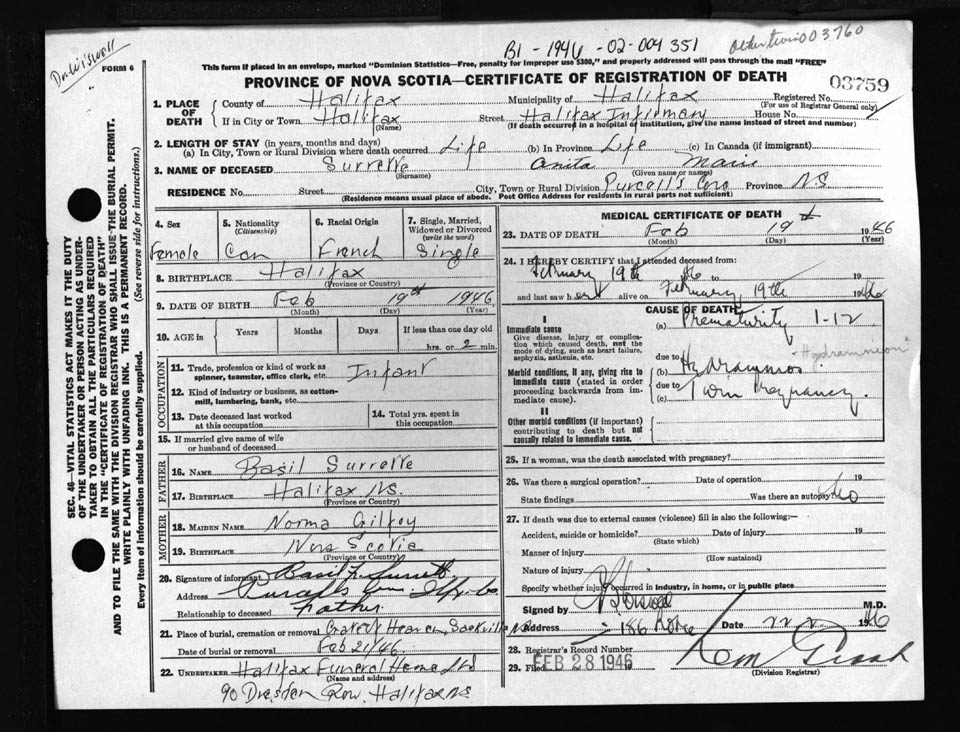 Dr. Wiswall
B1 - 1946 - 02 - 004351
Other twin 003760
FORM 6
This form if placed in an envelope, marked "Dominion Statistics—Free, penalty for improper use $300," and properly addressed will pass through the mail "FREE"
PROVINCE OF NOVA SCOTIA—CERTIFICATE OF REGISTRATION OF DEATH
03759
1. PLACE OF DEATH
County of Halifax Municipality of Halifax Registered No.
(For use of Registrar General only)
If in City or Town Halifax Street Halifax Infirmary House No.
(Name) (If death occurred in a hospital or institution, give the name instead of street and number)
2. LENGTH OF STAY (in years, months and days)
(a) In City, Town or Rural Division where death occurred Life (b) In Province Life (c) In Canada (if immigrant)
3. NAME OF DECEASED Surrette Anita Marie
(Surname) (Given name or names)
RESIDENCE No. Street City, Town or Rural Division Purcell's Cove Province N.S.
(Residence means usual place of abode. Post Office Address for residents in rural parts not sufficient)
SEC. 46—VITAL STATISTICS ACT MAKES IT THE DUTY
OF THE UNDERTAKER OR PERSON ACTING AS UNDERTAKER
TO OBTAIN ALL THE PARTICULARS REQUIRED
IN THE "CERTIFICATE OF REGISTRATION OF DEATH"
AND TO FILE THE SAME WITH THE DIVISION REGISTRAR WHO SHALL ISSUE THE BURIAL PERMIT.
WRITE PLAINLY WITH UNFADING INK. THIS IS A PERMANENT RECORD.
Every item of information should be carefully supplied. (See reverse side for instructions.)
4. Sex
Female
5. Nationality
(Citizenship)
Can
6. Racial Origin
French
7. Single, Married, Widowed or Divorced
(write the word)
Single
8. BIRTHPLACE Halifax
(Province or Country)
9. DATE OF BIRTH Feb 19th 1946
(Month) (Day) (Year)
10. AGE in Years Months Days If less than one day old
hrs. or 2 min.
OCCUPATION
11. Trade, profession or kind of work as
spinner, teamster, office clerk, etc. Infant
12. Kind of industry or business, as cotton-
mill, lumbering, bank, etc.
13. Date deceased last worked
at this occupation
14. Total yrs. spent in
this occupation
15. If married give name of wife
or husband of deceased
FATHER
16. NAME Basil Surrette
17. BIRTHPLACE Halifax N.S.
(Province or Country)
MOTHER
18. MAIDEN NAME Norma Gilfoy
19. BIRTHPLACE Nova Scotia
(Province or Country)
20. Signature of informant Basil F. Surrette
Address Purcells Cove. Hfx. Co.
Relationship to deceased Father
21. Place of burial, cremation or removal Gate of Heaven, Sackville N.S.
Date of burial or removal Feb 21/46
22. UNDERTAKER Halifax Funeral Home Ltd
(Name and address)
90 Dresden Row, Halifax N.S.
MEDICAL CERTIFICATE OF DEATH
23. DATE OF DEATH Feb 19th 1946
(Month) (Day) (Year)
24. I HEREBY CERTIFY that I attended deceased from:
February 19th 46 to 19
and last saw her alive on February 19th 1946
I
Immediate cause
Give disease, injury or complica-
tion which caused death, not the
mode of dying, such as heart failure,
asphyxia, asthenia, etc.
Morbid conditions, if any, giving rise to
immediate cause (stated in order
proceeding backwards from im-
mediate cause).
II
Other morbid conditions (if important)
contributing to death but not
causally related to immediate cause.
CAUSE OF DEATH
(a) Prematurity 1-12
due to
"Hydramnion"
(b) Hydramnios
due to
(c) Twin Pregnancy.
25. If a woman, was the death associated with pregnancy?
26. Was there a surgical operation? Date of operation 19
State findings Was there an autopsy? No
27. If death was due to external causes (violence) fill in also the following:—
Accident, suicide or homicide? Date of injury 19
(State which)
Manner of injury
(How sustained)
Nature of injury
Specify whether injury occurred in industry, in home, or in public place
Signed by M.D.
Address 186 Date 1946
28. Registrar's Record Number
29. Filed FEB 28 1946
(Division Registrar)